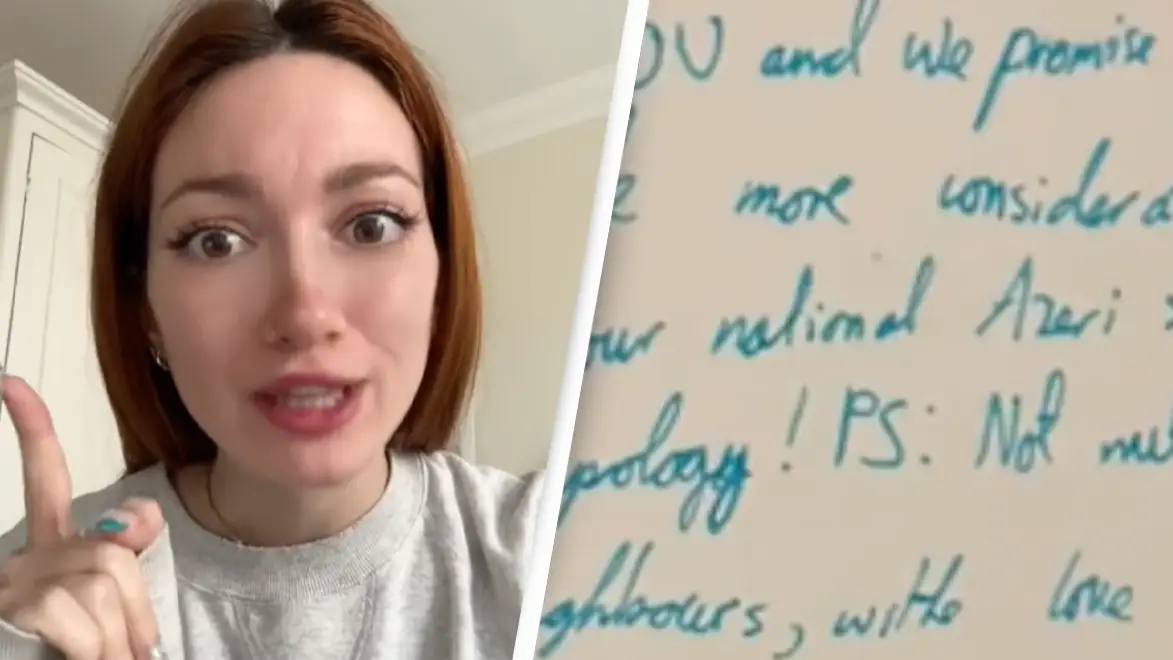 OU and we promise
e more considera
our national Azeri
pology! PS: Not mu
ghbours, withe love